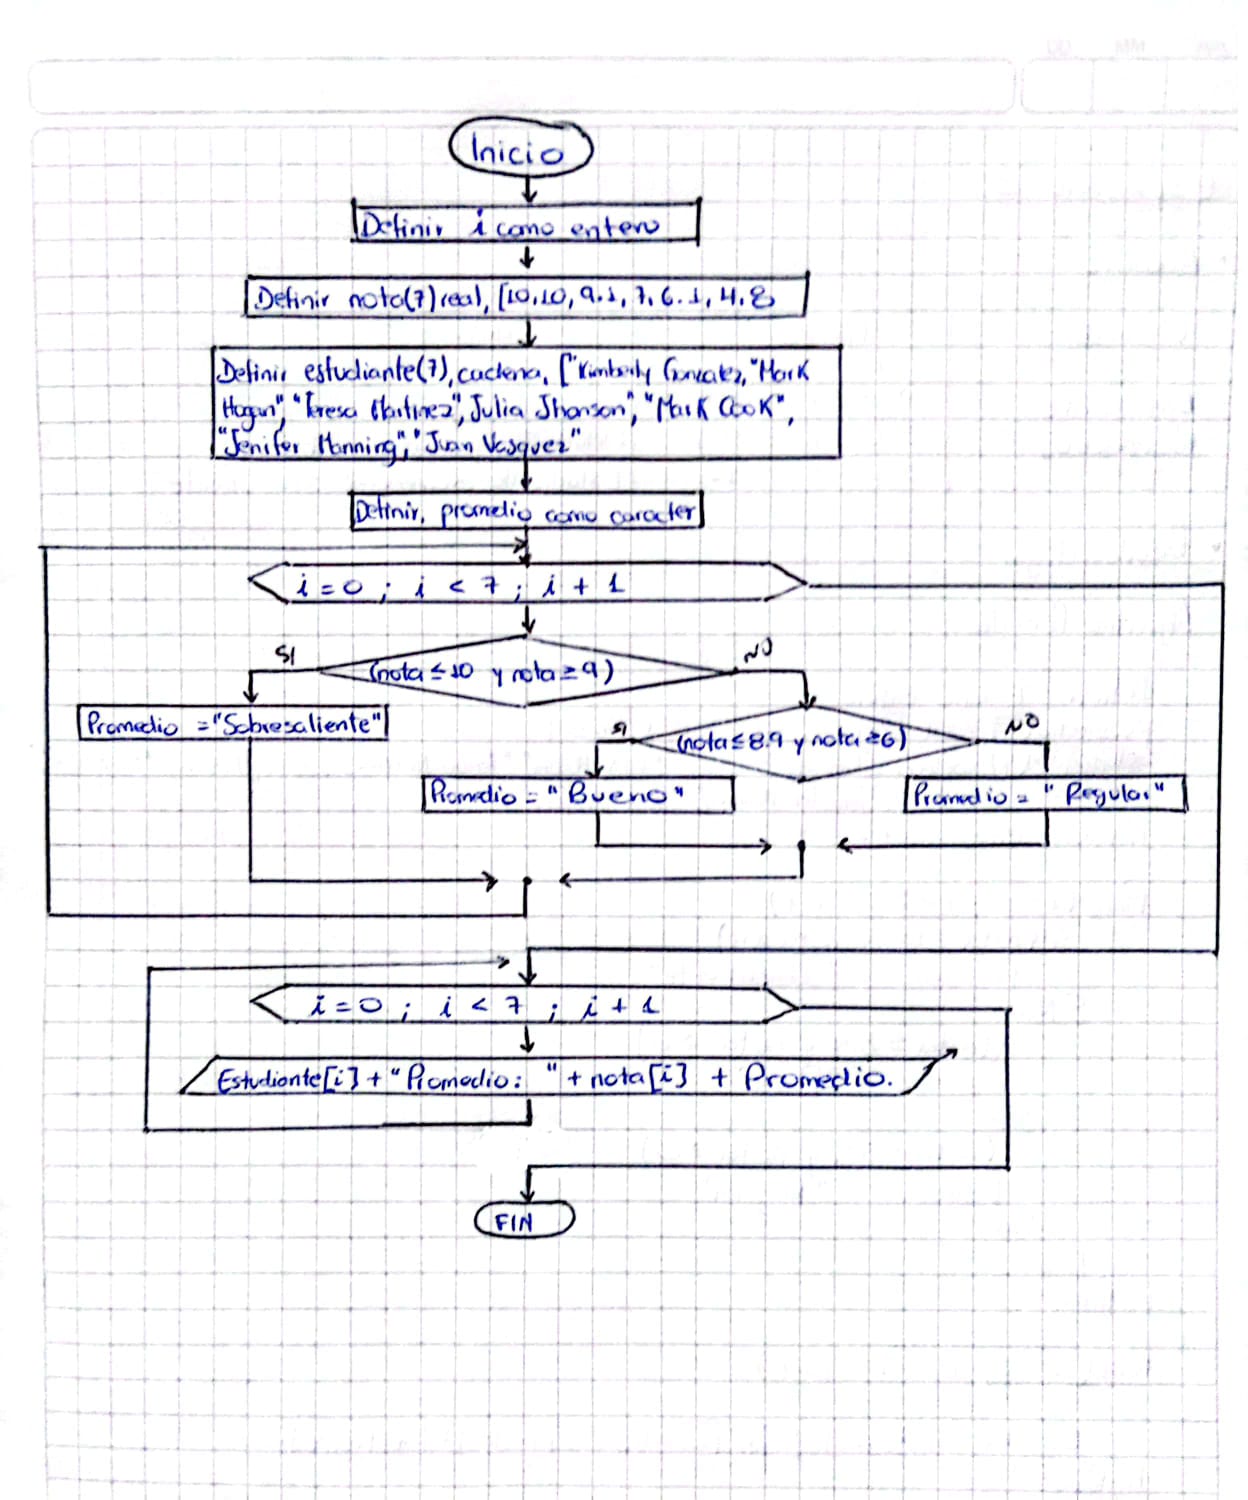 Inicio
Definir i como entero
Definir nota(7) real, [10,10, 9.1, 7, 6.1, 4, 8
Definir estudiante(7), cadena, ["Kimberly Gonzalez, "Mark
Hogan", "Teresa Martinez", Julia Jhonson", "Mark Cook",
"Jenifer Manning", "Juan Vasquez"
Definir, promedio como caracter
i = 0 ; i < 7 ; i + 1
SI
(nota ≤ 10 y nota ≥ 9)
NO
Promedio = "Sobresaliente"
SI
(nota ≤ 8.9 y nota ≥ 6)
NO
Promedio = "Bueno"
Promedio = "Regular"
i = 0 ; i < 7 ; i + 1
Estudiante[i] + "Promedio: " + nota[i] + Promedio.
FIN